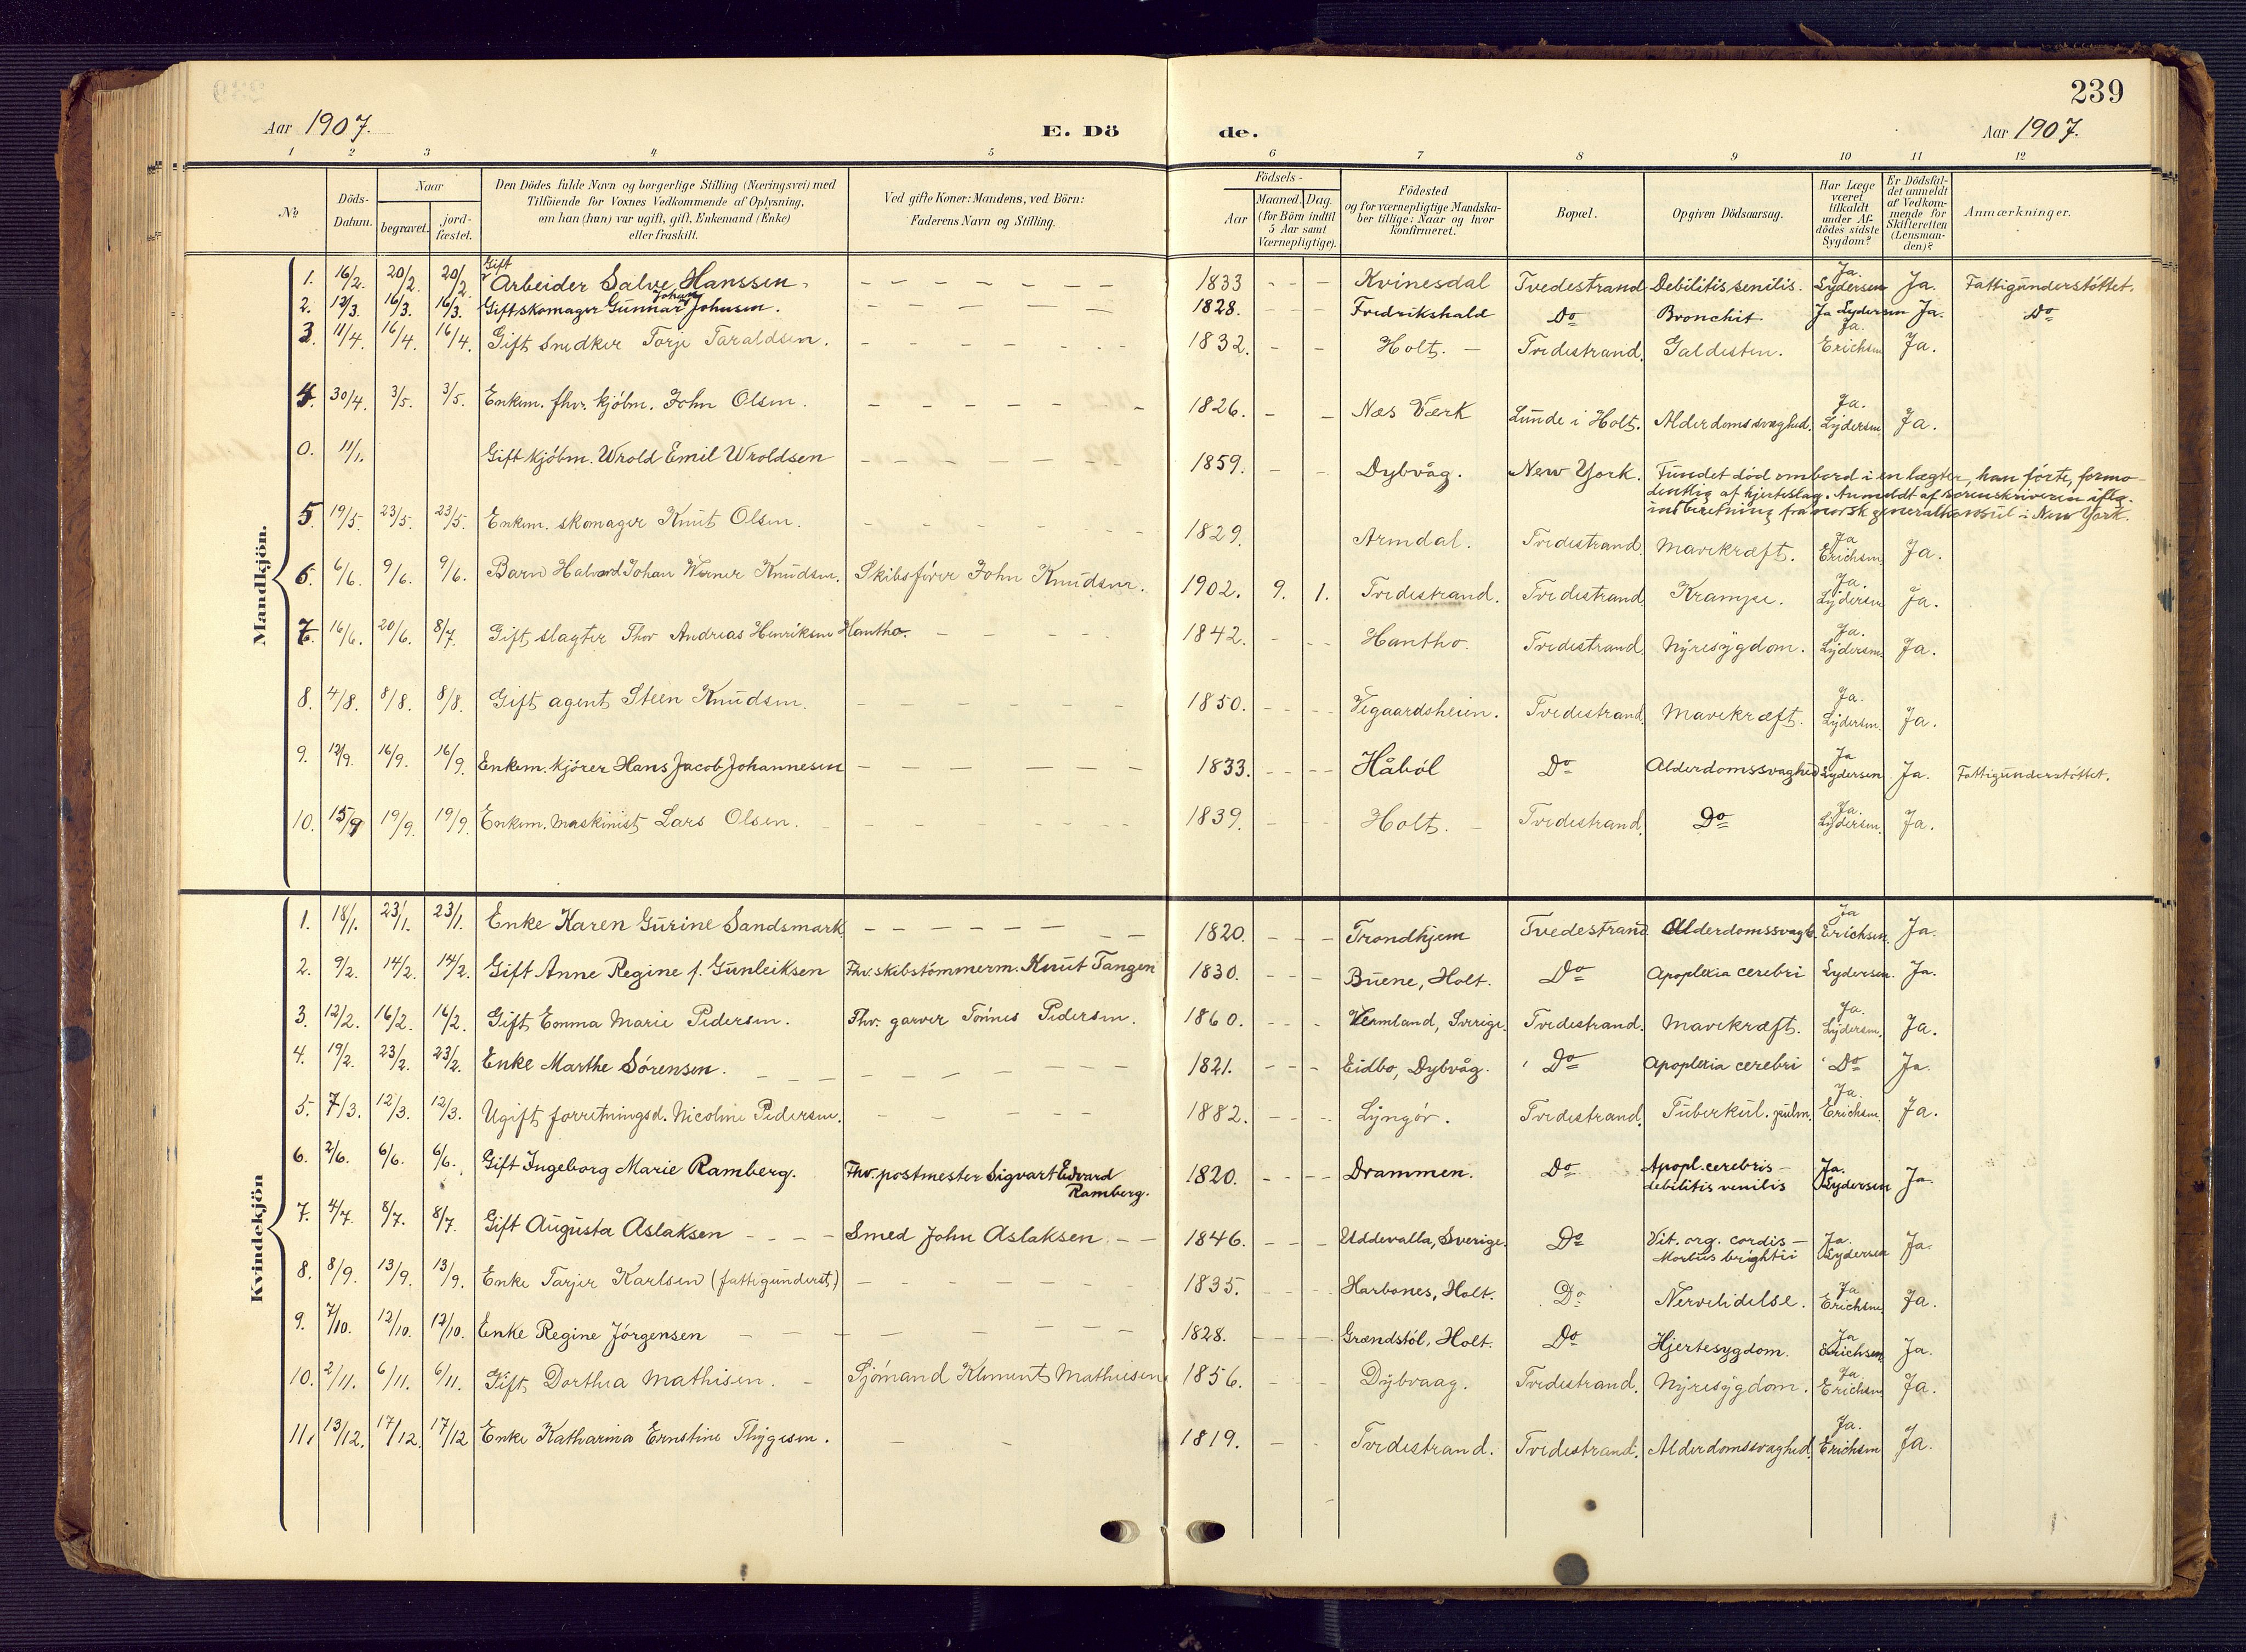 239
Aar 1907.
E. Dö
de.
Aar 1907.
1 2 3 4 5 6 7 8 9 10 11 12
№
Döds-Datum.
Naar
begravet.
jord-fæstet.
Den Dödes fulde Navn og borgerlige Stilling (Næringsvei) med
Tilföiende for Voxnes Vedkommende af Oplysning,
om han (hun) var ugift, gift, Enkemand (Enke)
eller fraskilt.
Ved gifte Koner: Mandens, ved Börn:
Faderens Navn og Stilling.
Födsels-
Aar
Maaned. Dag.
(for Börn indtil
5 Aar samt
Værnepligtige).
Födested
og for værnepligtige Mandska-
ber tillige: Naar og hvor
konfirmeret.
Bopæl.
Opgiven Dödsaarsag.
Har Læge
været
tilkaldt
under Af-
dödes sidste
Sygdom?
Er Dödsfal-
det anmeldt
af Vedkom-
mende for
Skifteretten
(Lensman-
den)?
Anmærkninger.
Mandkjön.
1. 16/2. 20/2. 20/2 Gift Arbeider Salve Hanssen. 1833 Kvinesdal Tvedestrand Debilitis senilis. Ja. Lydersen Ja. Fattigunderstöttet.
2. 12/3. 16/3. 16/3. Gift skomager Gunnar Johan Johnsen. 1828. Fredrikshald Do Bronchit Ja Lydersen Ja. Do
3. 11/4. 16/4. 16/4. Gift Snedker Torje Taraldsen. 1832. Holt. Tvedestrand. Galdesten. Ja. Erichsen Ja.
4. 30/4. 3/5. 3/5. Enkem. fhv. kjöbm. John Olsen. 1826. Næs Værk Lunde i Holt. Alderdomssvaghed. Ja. Lydersen Ja.
0. 11/1. Gift kjöbm. Wrold Emil Wroldsen 1859. Dybvåg. New York. Fundet död ombord i en lægter, han förte, formo-
dentlig af hjerteslag. Anmeldt af sorenskriveren iflg.
indberetning fra norsk generalkonsul i New York.
5. 19/5. 23/5. 23/5. Enkem. skomager Knut Olsen. 1829. Arendal. Tvedestrand. Mavekræft. Ja Erichsen, Ja.
6. 6/6. 9/6. 9/6. Barn Halvard Johan Werner Knudsen. Skibsförer John Knudsen. 1902. 9. 1. Tvedestrand. Tvedestrand. Krampe. Ja. Lydersen Ja.
7. 16/6. 20/6. 8/7. Gift, slagter Thor Andreas Henriksen Hantho. 1842. Hantho. Tvedestrand. Nyresygdom. Ja. Lydersen. Ja.
8. 4/8. 8/8. 8/8. Gift agent Steen Knudsen. 1850. Vegaardsheien. Tvedestrand. Mavekræft. Ja. Lydersen. Ja.
9. 12/9. 16/9. 16/9. Enkem. kjörer Hans Jacob Johannesen 1833. Håból Do Alderdomssvaghed Ja Lydersen Ja. Fattigunderstöttet.
10. 15/9 19/9. 19/9. Enkem. Maskinist Lars Olsen. 1839. Holt. Tvedestrand. Do Ja. Lydersen. Ja.
Kvindekjön
1. 18/1. 23/1. 23/1. Enke Karen Gurine Sandsmark 1820. Trondhjem Tvedestrand Alderdomssvagh. Ja Erichsen. Ja.
2. 9/2. 14/2. 14/2. Gift Anne Regine f. Gunleiksen Fhv. skibstömmerm. Knut Tangen 1830. Buene, Holt. Do Apoplexia cerebri Lydersen. Ja.
3. 12/2. 16/2. 16/2. Gift Emma Marie Pedersen. Fhv. garver Tönnes Pedersen. 1860. Vermland, Sverige. Tvedestrand. Mavekræft. Ja. Lydersen. Ja.
4. 19/2. 23/2. 23/2. Enke Marthe Sörensen. 1821. Eidbo, Dybvåg. Do Apoplexia cerebri Do Ja.
5. 7/3. 12/3. 12/3. Ugift forretningsd. Nicoline Pedersen. 1882. Lyngör. Tvedestrand. Tuberkul. pulm. Ja. Erichsen. Ja.
6. 2/6. 6/6. 6/6. Gift Ingeborg Marie Ramberg. Fhv. postmester Sigvart Edvard Ramberg. 1820. Drammen. Do Apopl. cerebris – debilitis senilis Ja. Lydersen Ja.
7. 4/7. 8/7. 8/7. Gift Augusta Aslaksen Smed John Aslaksen 1846. Uddevalla, Sverige. Do Vit. org. cordis – Morbus brightii Ja. Lydersen Ja.
8. 8/9. 13/9. 13/9. Enke Tarjer Karlsen (fattigunderst.) 1835. Harbones, Holt. Do Nervelidelse. Ja Erichsen Ja.
9. 7/10. 12/10. 12/10. Enke Regine Jörgensen 1828. Grændstöl, Holt. Do Hjertesygdom. Ja Erichsen Ja.
10. 2/11. 6/11. 6/11. Gift Dorthea Mathisen. Sjömand Klement Mathiesen 1856. Dybvaag. Tvedestrand. Nyresygdom. Ja. Erichsen Ja.
11. 13/12. 17/12. 17/12 Enke Katharina Ernstine Thygesen. 1819. Tvedestrand. Tvedestrand. Alderdomssvaghed. Ja. Erichsen Ja.